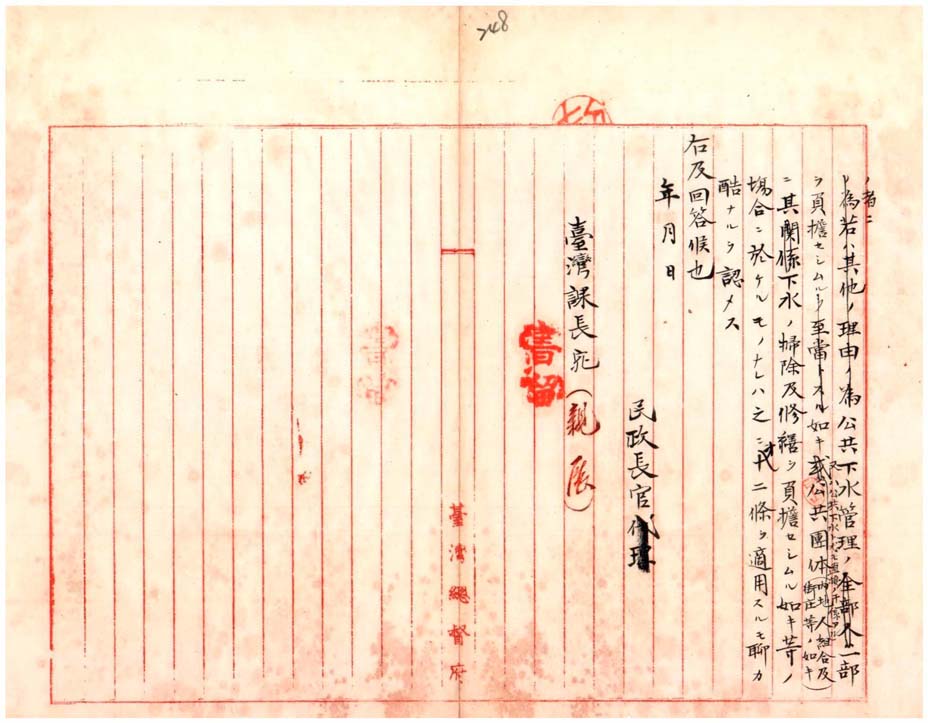 748
ノ者ニ
ノ為若ハ其他ノ理由ノ為公共下水管理ノ全部又ハ一部
ヲ負擔セシムルヲ至當トスル如キ或公共團体(内地人組合及
街庄等ノ如キ)
ニ其關係下水ノ掃除及修繕ヲ負擔セシムル如キ等ノ
場合ニ於ケルモノナレハ之ニオ十二條ヲ適用スルモ聊カ
酷ナルヲ認メス
右及回答候也
年月日
民政長官代理
臺灣課長宛(親展)
書留
臺灣總督府
書留